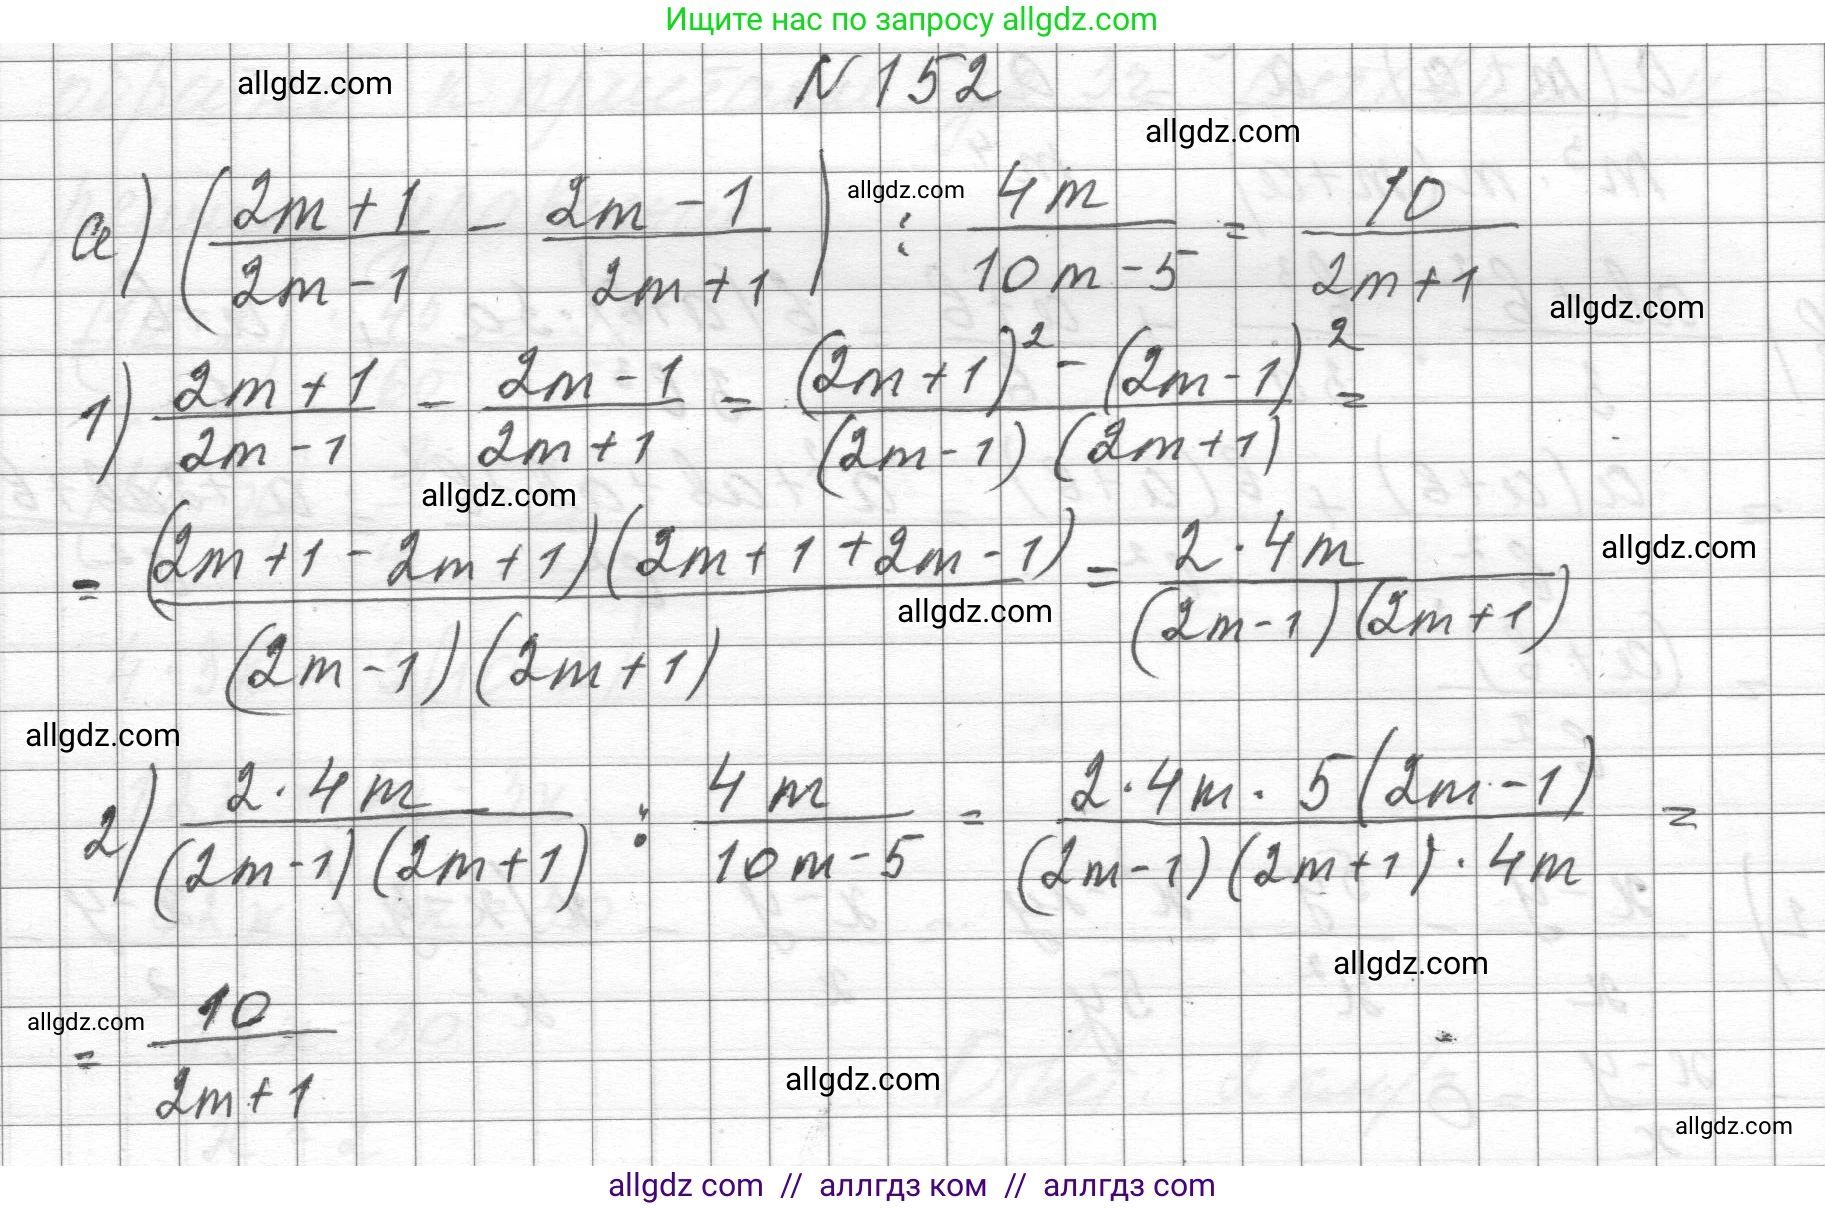 Ищите нас по запросу allgdz.com
allgdz.com
N 152
allgdz.com
а) ( (2m+1)/(2m-1) - (2m-1)/(2m+1) ) : 4m/(10m-5) = 10/(2m+1)
allgdz.com
allgdz.com
1) (2m+1)/(2m-1) - (2m-1)/(2m+1) = ((2m+1)² - (2m-1)²)/((2m-1)(2m+1)) =
allgdz.com
= ((2m+1-2m+1)(2m+1+2m-1))/((2m-1)(2m+1)) = (2·4m)/((2m-1)(2m+1))
allgdz.com
allgdz.com
allgdz.com
2) (2·4m)/((2m-1)(2m+1)) : 4m/(10m-5) = (2·4m·5(2m-1))/((2m-1)(2m+1)·4m) =
allgdz.com
allgdz.com
= 10/(2m+1)
allgdz.com
allgdz.com
allgdz com // аллгдз ком // аллгдз com